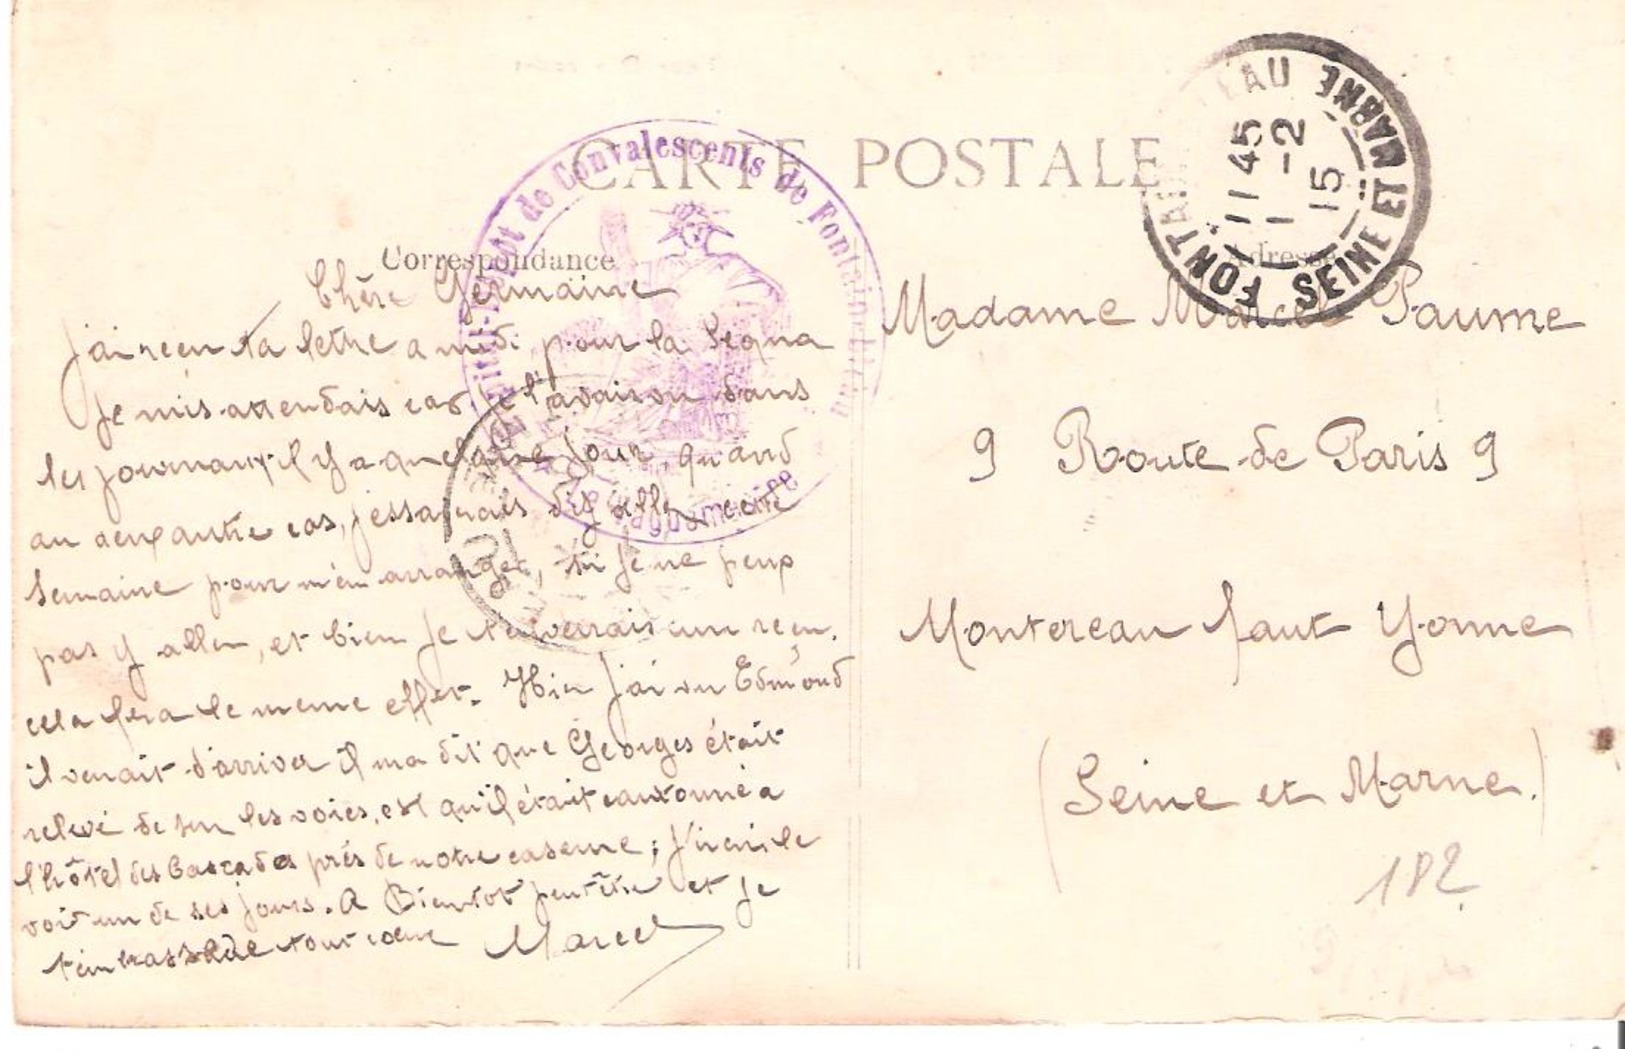 CARTE POSTALE
Correspondance
Adresse
Hôpital-Dépôt de Convalescents de Fontainebleau
FONTAINEBLEAU SEINE ET MARNE
11 45
1 -2
15
Chère Germaine
J'ai reçu ta lettre a midi, pour la
Je mis attendais car, je l'avais vu dans
les journaux il y a quelque jour, quand
au deux autre cas, j'essayerais d'y aller cette
semaine pour m'en arranger, si je ne peux
pas y aller, et bien je t'enverrais un reçu.
cela fera le meme effet. Hier j'ai vu Edmond
il venait d'arriver il ma dit que Georges était
relevé de sur les voies, est qu'il était cantonné a
l'hôtel des Cascades près de notre caserne; J'irai le
voir un de ses jours. A Bientot peutêtre et je
t'embrasse de tout cœur Marcel
Madame Marcel Paume
9 Route de Paris 9
Montereau faut Yonne
(Seine et Marne.)
182